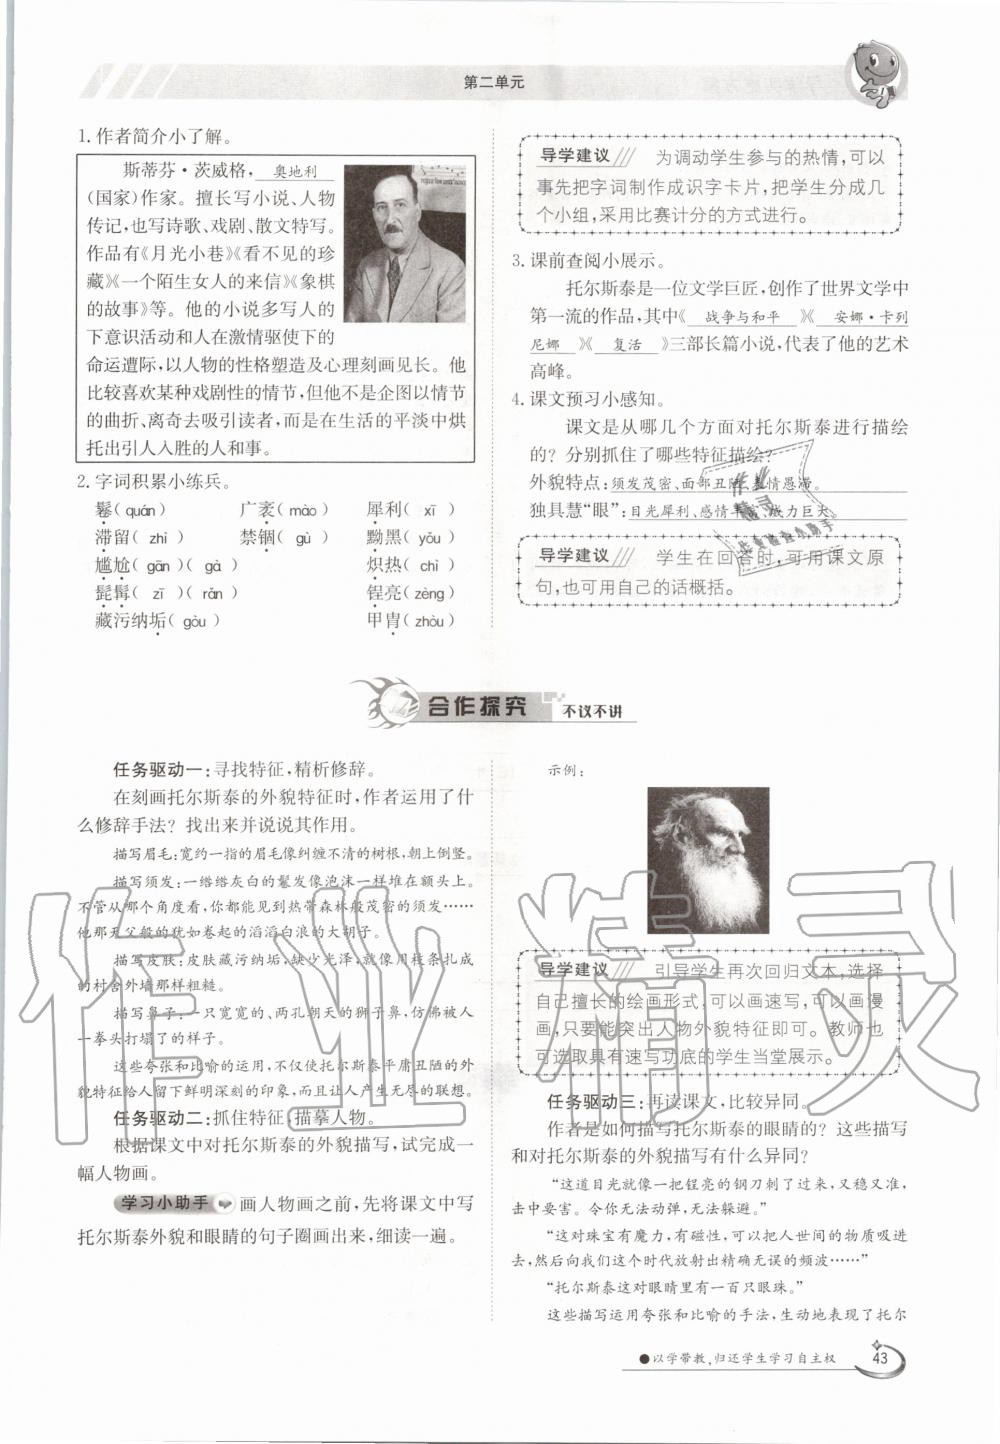 第二单元
1. 作者简介小了解。
斯蒂芬·茨威格, 奥地利
(国家)作家。擅长写小说、人物
传记,也写诗歌、戏剧、散文特写。
作品有《月光小巷》《看不见的珍
藏》《一个陌生女人的来信》《象棋
的故事》等。他的小说多写人的
下意识活动和人在激情驱使下的
命运遭际,以人物的性格塑造及心理刻画见长。他
比较喜欢某种戏剧性的情节,但他不是企图以情节
的曲折、离奇去吸引读者,而是在生活的平淡中烘
托出引人入胜的人和事。
2. 字词积累小练兵。
鬈(quán) 广袤(mào) 犀利(xī)
滞留(zhì) 禁锢(gù) 黝黑(yǒu)
尴尬(gān)(gà) 炽热(chì)
髭髯(zī)(rǎn) 锃亮(zèng)
藏污纳垢(gòu) 甲胄(zhòu)
导学建议 为调动学生参与的热情,可以
事先把字词制作成识字卡片,把学生分成几
个小组,采用比赛计分的方式进行。
3. 课前查阅小展示。
托尔斯泰是一位文学巨匠,创作了世界文学中
第一流的作品,其中《 战争与和平 》《 安娜·卡列
尼娜 》《 复活 》三部长篇小说,代表了他的艺术
高峰。
4. 课文预习小感知。
课文是从哪几个方面对托尔斯泰进行描绘
的?分别抓住了哪些特征描绘?
外貌特点:须发茂密、面部丑陋、表情愚滞。
独具慧“眼”:目光犀利、感情丰富、威力巨大。
导学建议 学生在回答时,可用课文原
句,也可用自己的话概括。
合作探究 不议不讲
任务驱动一:寻找特征,精析修辞。
在刻画托尔斯泰的外貌特征时,作者运用了什
么修辞手法?找出来并说说其作用。
描写眉毛:宽约一指的眉毛像纠缠不清的树根,朝上倒竖。
描写须发:一绺绺灰白的鬈发像泡沫一样堆在额头上。
不管从哪个角度看,你都能见到热带森林般茂密的须发……
他那天父般的犹如卷起的滔滔白浪的大胡子。
描写皮肤:皮肤藏污纳垢,缺少光泽,就像用枝条扎成
的村舍外墙那样粗糙。
描写鼻子:一只宽宽的、两孔朝天的狮子鼻,仿佛被人
一拳头打塌了的样子。
这些夸张和比喻的运用,不仅使托尔斯泰平庸丑陋的外
貌特征给人留下鲜明深刻的印象,而且让人产生无尽的联想。
任务驱动二:抓住特征,描摹人物。
根据课文中对托尔斯泰的外貌描写,试完成一
幅人物画。
学习小助手 画人物画之前,先将课文中写
托尔斯泰外貌和眼睛的句子圈画出来,细读一遍。
示例:
导学建议 引导学生再次回归文本,选择
自己擅长的绘画形式,可以画速写,可以画漫
画,只要能突出人物外貌特征即可。教师也
可选取具有速写功底的学生当堂展示。
任务驱动三:再读课文,比较异同。
作者是如何描写托尔斯泰的眼睛的?这些描写
和对托尔斯泰的外貌描写有什么异同?
“这道目光就像一把锃亮的钢刀刺了过来,又稳又准,
击中要害。令你无法动弹,无法躲避。”
“这对珠宝有魔力,有磁性,可以把人世间的物质吸进
去,然后向我们这个时代放射出精确无误的频波……”
“托尔斯泰这对眼睛里有一百只眼珠。”
这些描写运用夸张和比喻的手法,生动地表现了托尔
●以学带教,归还学生学习自主权
43
作业精灵
作业
精灵